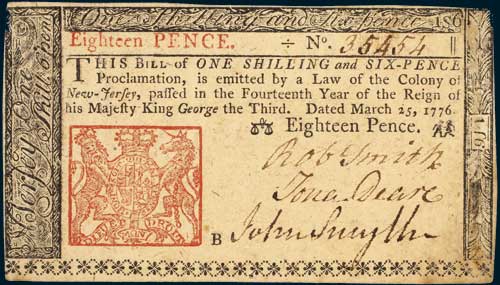 One Shilling and Six-pence 1s6
Eighteen PENCE. ÷ No. 35454
THIS BILL of ONE SHILLING and SIX-PENCE
Proclamation, is emitted by a Law of the Colony of
New-Jersey, passed in the Fourteenth Year of the Reign of
his Majesty King George the Third. Dated March 25, 1776.
Eighteen Pence.
Rob Smith
Jona Deare
B John Smyth